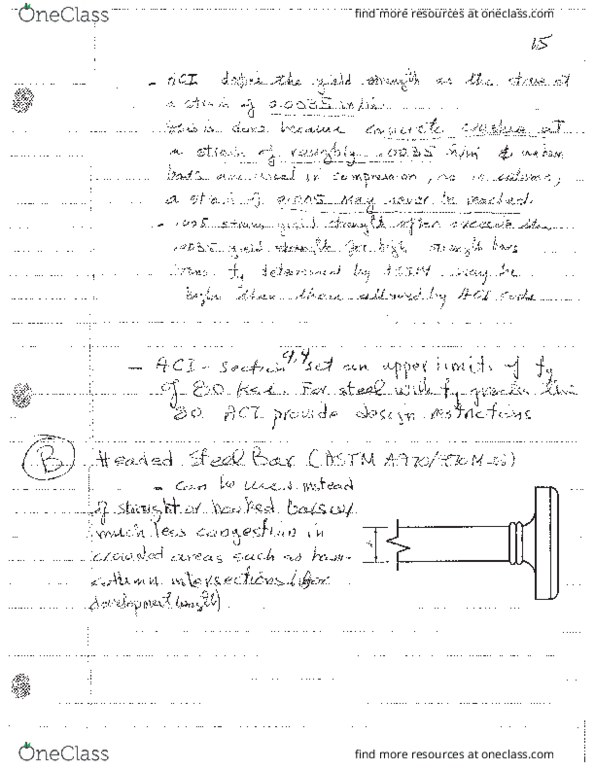 OneClass
find more resources at oneclass.com
15
- ACI define the yield strength as the stress at
a strain of 0.0035 in/in
this is done because concrete crushes at
a strain of roughly .0035 in/in & when
bars are used in compression,
a strain of 0.005 may never be reached.
- .005 strain yield strength often exceeds the
.0035 yield strength for high strength bars
fy determined by ASTM may be
higher than those allowed by ACI code
- ACI - section 9.4 set an upper limit of fy
of 80 ksi. For steel with fy greater than
80 ACI provide design restrictions
B Headed Steel Bar (ASTM A970/
- can be used instead
of straight or hooked bars w/
much less congestion in
crowded areas such as beam-
column intersections (for
development length)
OneClass
find more resources at oneclass.com